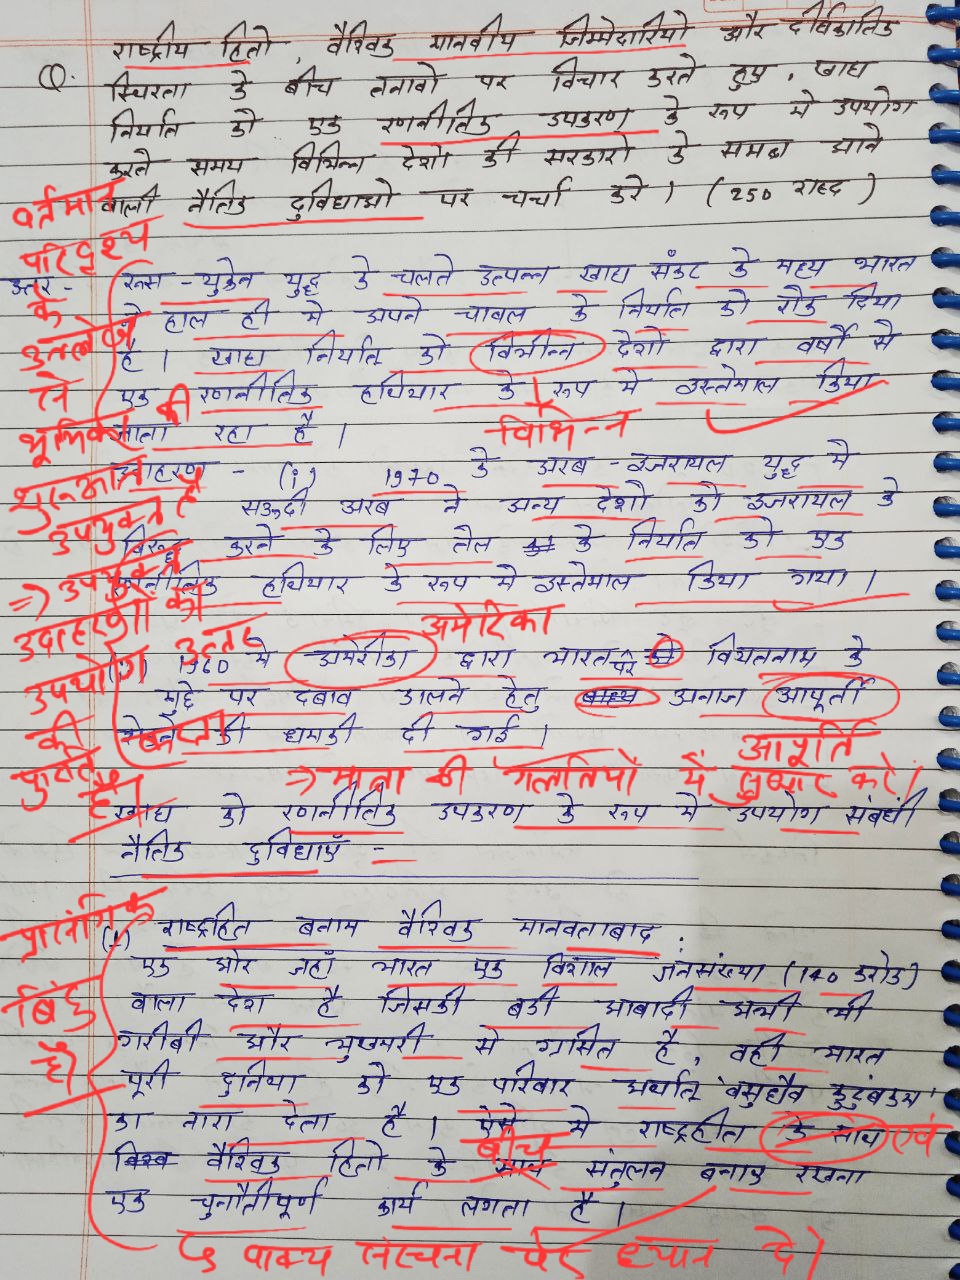 राष्ट्रीय हितो, वैश्विक मानवीय जिम्मेदारियो और दीर्घकालिक
Q. स्थिरता के बीच तनावो पर विचार करते हुए, खाद्य
निर्यात को एक रणनीतिक उपकरण के रूप मे उपयोग
करते समय विभिन्न देशो की सरकारो के समक्ष आने
वाली नैतिक दुविधाओ पर चर्चा करे। (250 शब्द)
वर्तमान
परिदृश्य
के
उल्लेख
से
भूमिका की
शुरूआत
उपयुक्त है
उत्तर - रूस - युक्रेन युद्ध के चलते उत्पन्न खाद्य संकट के मध्य भारत
ने हाल ही मे अपने चावल के निर्यात को रोक दिया
है। खाद्य निर्यात को विभीन्न देशो द्वारा वर्षो से
एक रणनीतिक हथियार के रूप मे इस्तेमाल किया
जाता रहा है।
विभिन्न
उदाहरण - (i) 1970 के अरब - इजरायल युद्ध मे
सऊदी अरब ने अन्य देशो को इजरायल के
विरूद्ध करने के लिए तेल के निर्यात को एक
रणनीतिक हथियार के रूप मे इस्तेमाल किया गया।
⇒ उपयुक्त
उदाहरणों का
उपयोग उत्तर
की
पुष्टि करता
है।
अमेरिका
(ii) 1960 मे अमेरीका द्वारा भारत पर को वियतनाम के
मुद्दे पर दबाव डालने हेतु बाध्य अनाज आपूर्ती
रोकने की धमकी दी गई।
आपूर्ति
⇒ मात्रा की गलतियों में सुधार करें।
खाद्य को रणनीतिक उपकरण के रूप मे उपयोग संबंधी
नैतिक दुविधाएँ -
प्रासंगिक
बिंदु
है।
(1) राष्ट्रहित बनाम वैश्विक मानवतावाद :
एक ओर जहाँ भारत एक विशाल जनसंख्या (140 करोड)
वाला देश है जिसकी बडी आबादी अभी भी
गरीबी और भुखमरी से ग्रसित है, वही भारत
पूरी दुनिया को एक परिवार अर्थात 'वसुधैव कुटुंबकम'
का नारा देता है। ऐसे मे राष्ट्रहीत के साथ एवं
विश्व वैश्विक हितो के साथ बीच संतुलन बनाए रखना
एक चुनौतीपूर्ण कार्य लगता है।
↳ वाक्य संरचना पर ध्यान दे।